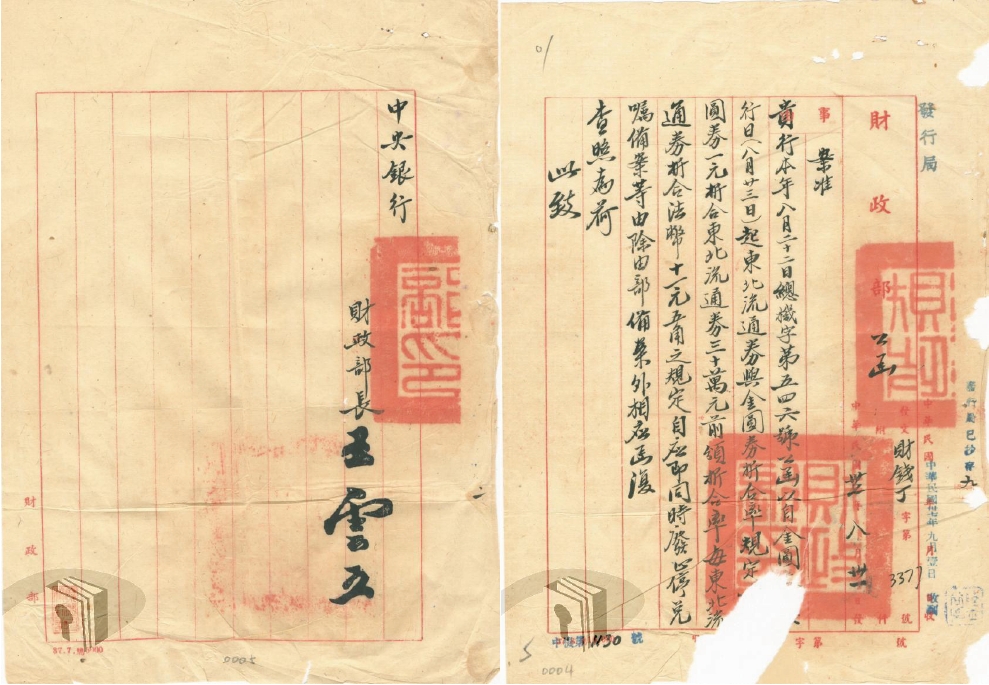 發行局
財政部
公函
財錢丁字第3377號
中華民國卅七年九月壹日收到
事
案准
貴行本年八月二十二日總機字第五四六號公函以自金圓
行日(八月廿三日)起東北流通券與金圓券折合率規定
圓券一元折合東北流通券三十萬元前頒折合率每東北流
通券折合法幣十一元五角之規定自應即同時廢止停兌
囑備案等由除由部備案外相應函復
查照為荷
此致
1130號
0004
中央銀行
財政部長王雲五
財政部
0005